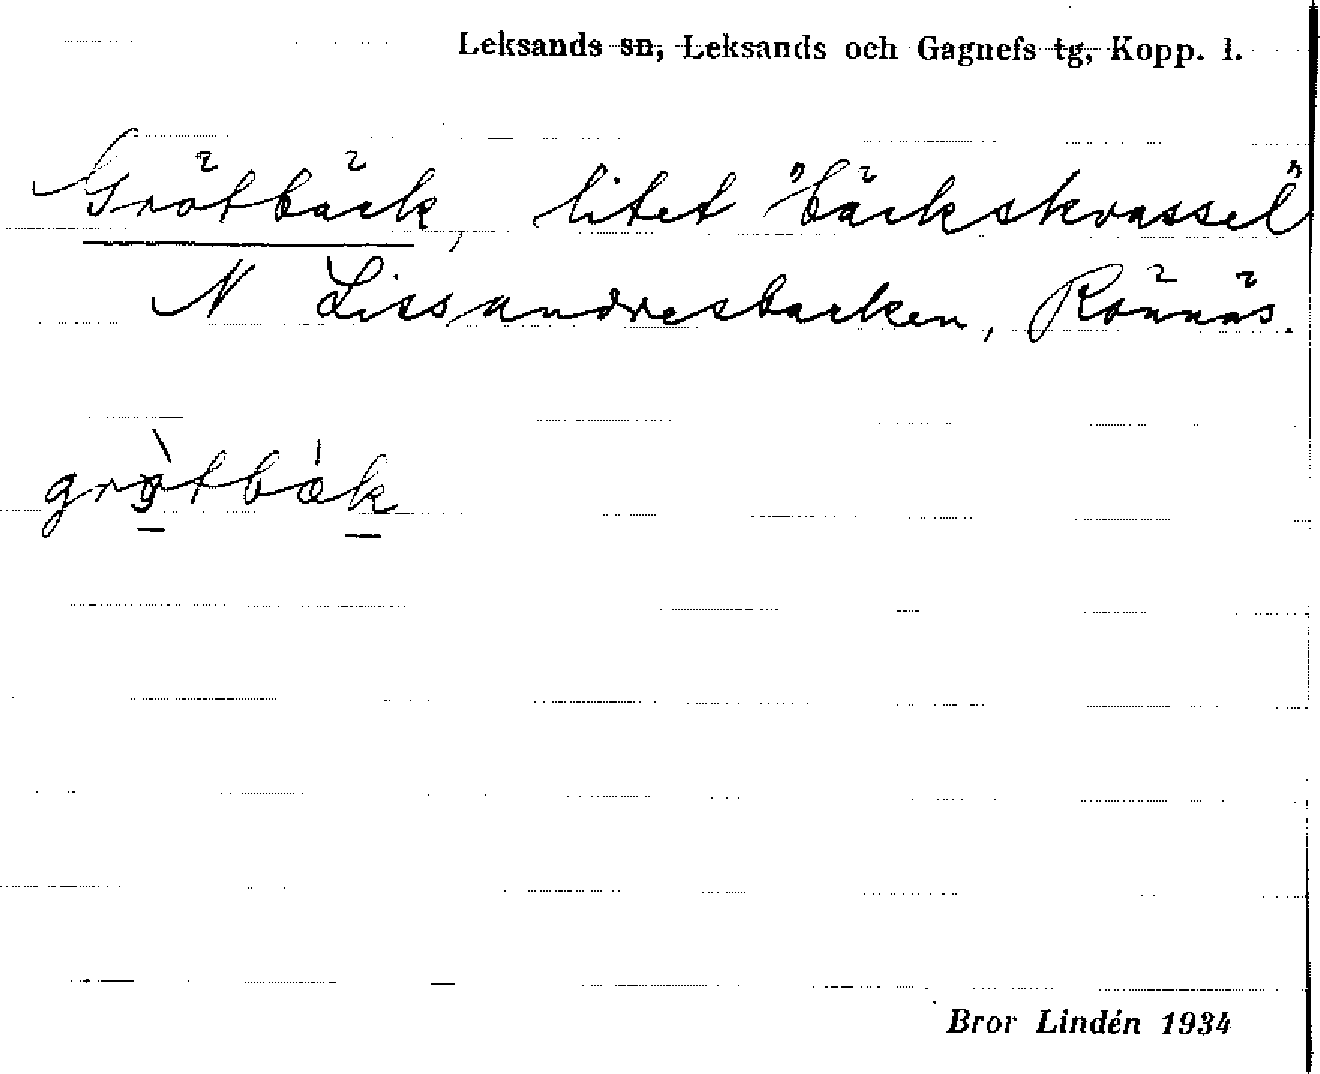 Leksands sn, Leksands och Gagnefs tg, Kopp. l.
Grötbäck, litet "bäckskvassel"
N Lissandresbacken, Rönnäs.
Bror Lindén 1934